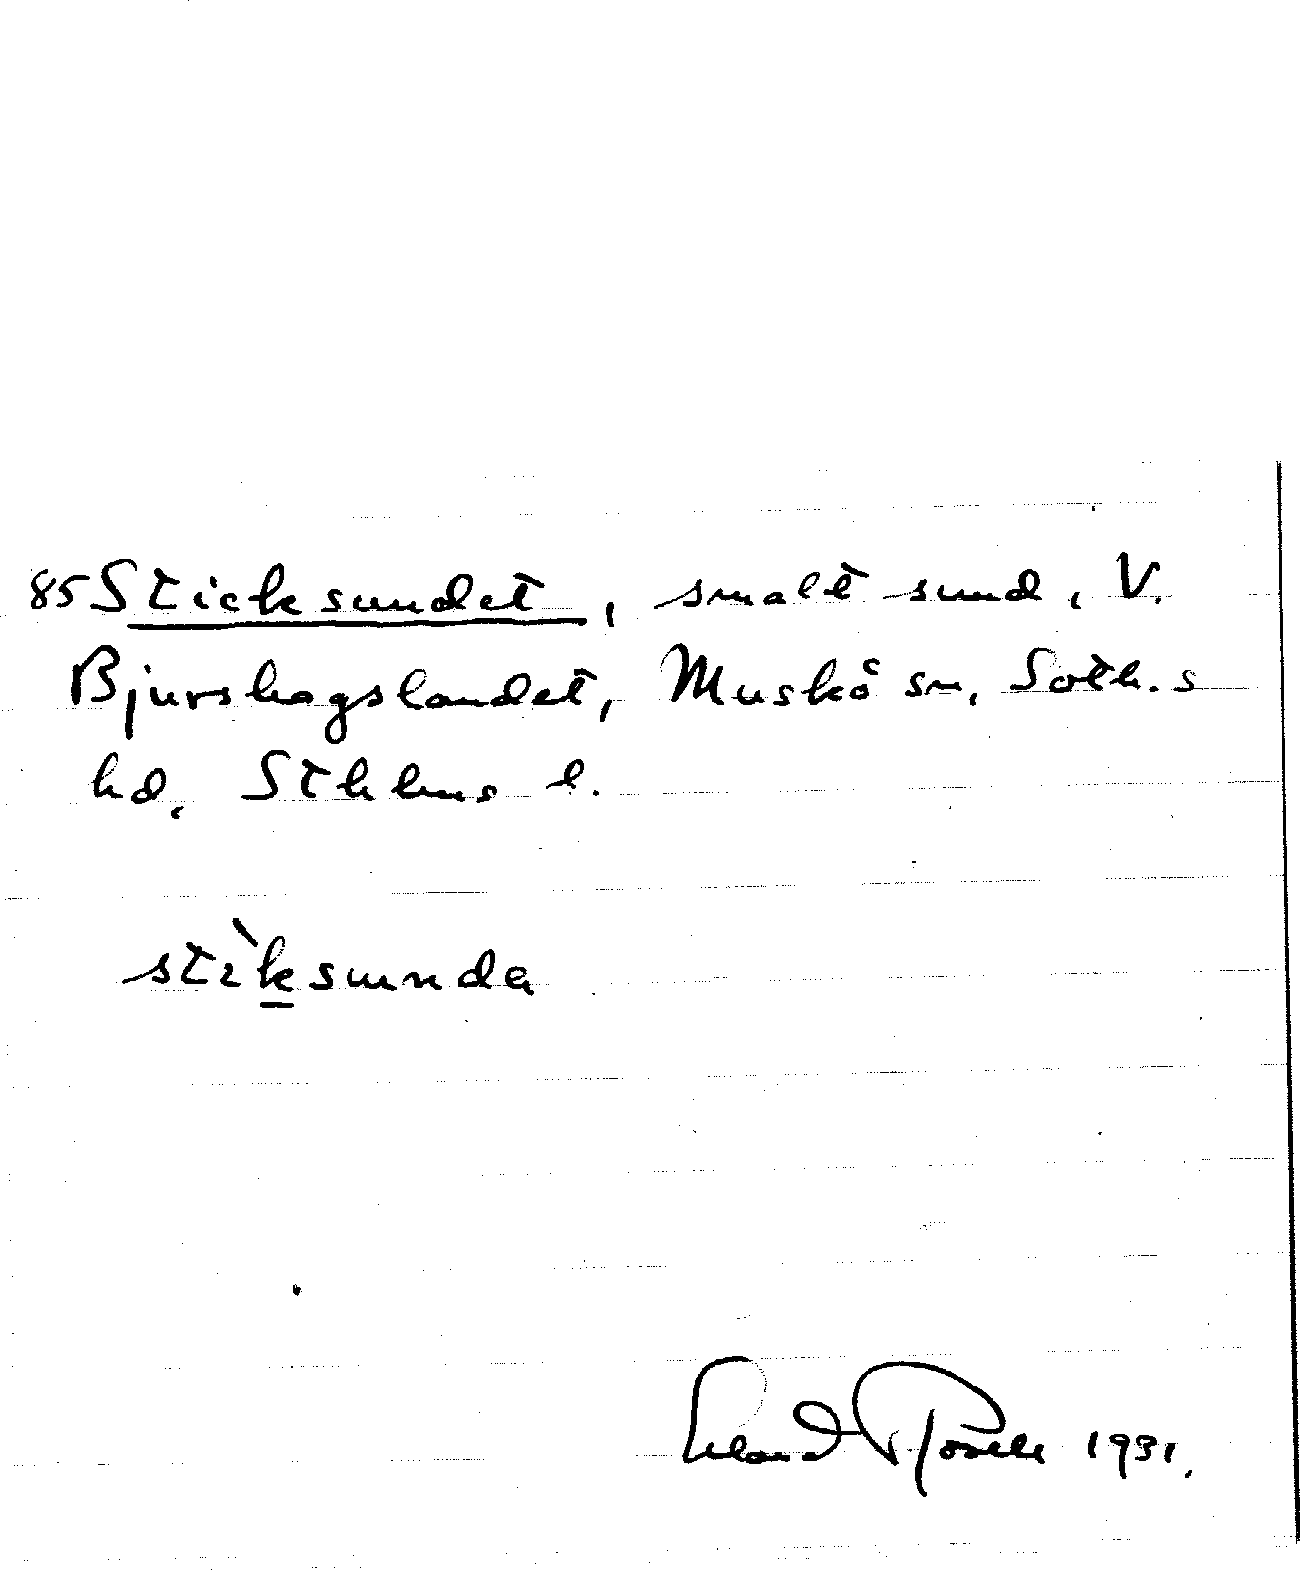 85 Sticksundet, smalt sund, V.
Bjurshagslandet, Muskö sn, Soth.s
hd, Sthlms l.
stìksunda
Erland Rosell 1931.